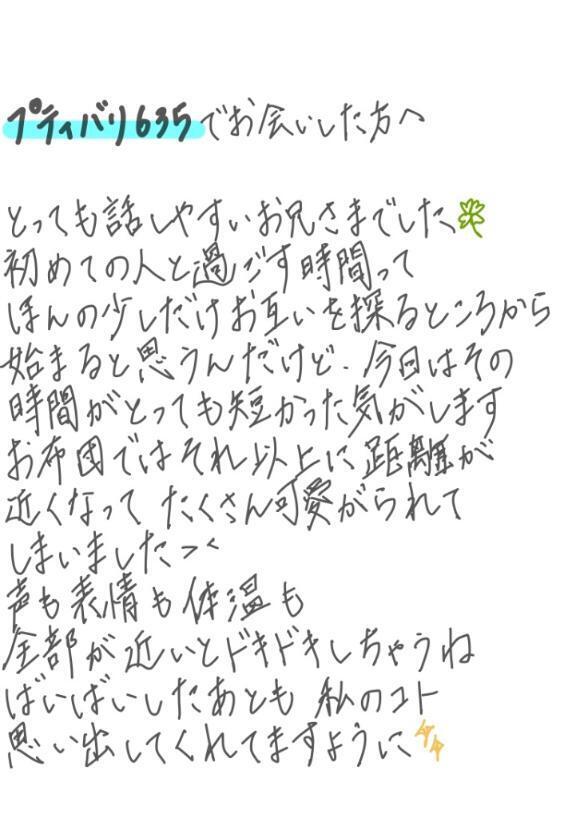 プティバリ635でお会いした方へ
とっても話しやすいお兄さまでした
初めての人と過ごす時間って
ほんの少しだけお互いを探るところから
始まると思うんだけど、今回はその
時間がとっても短かった気がします
お布団ではそれ以上に距離が
近くなって たくさん可愛がられて
しまいました><
声も表情も体温も
全部が近いとドキドキしちゃうね
ばいばいしたあとも 私のコト
思い出してくれてますように